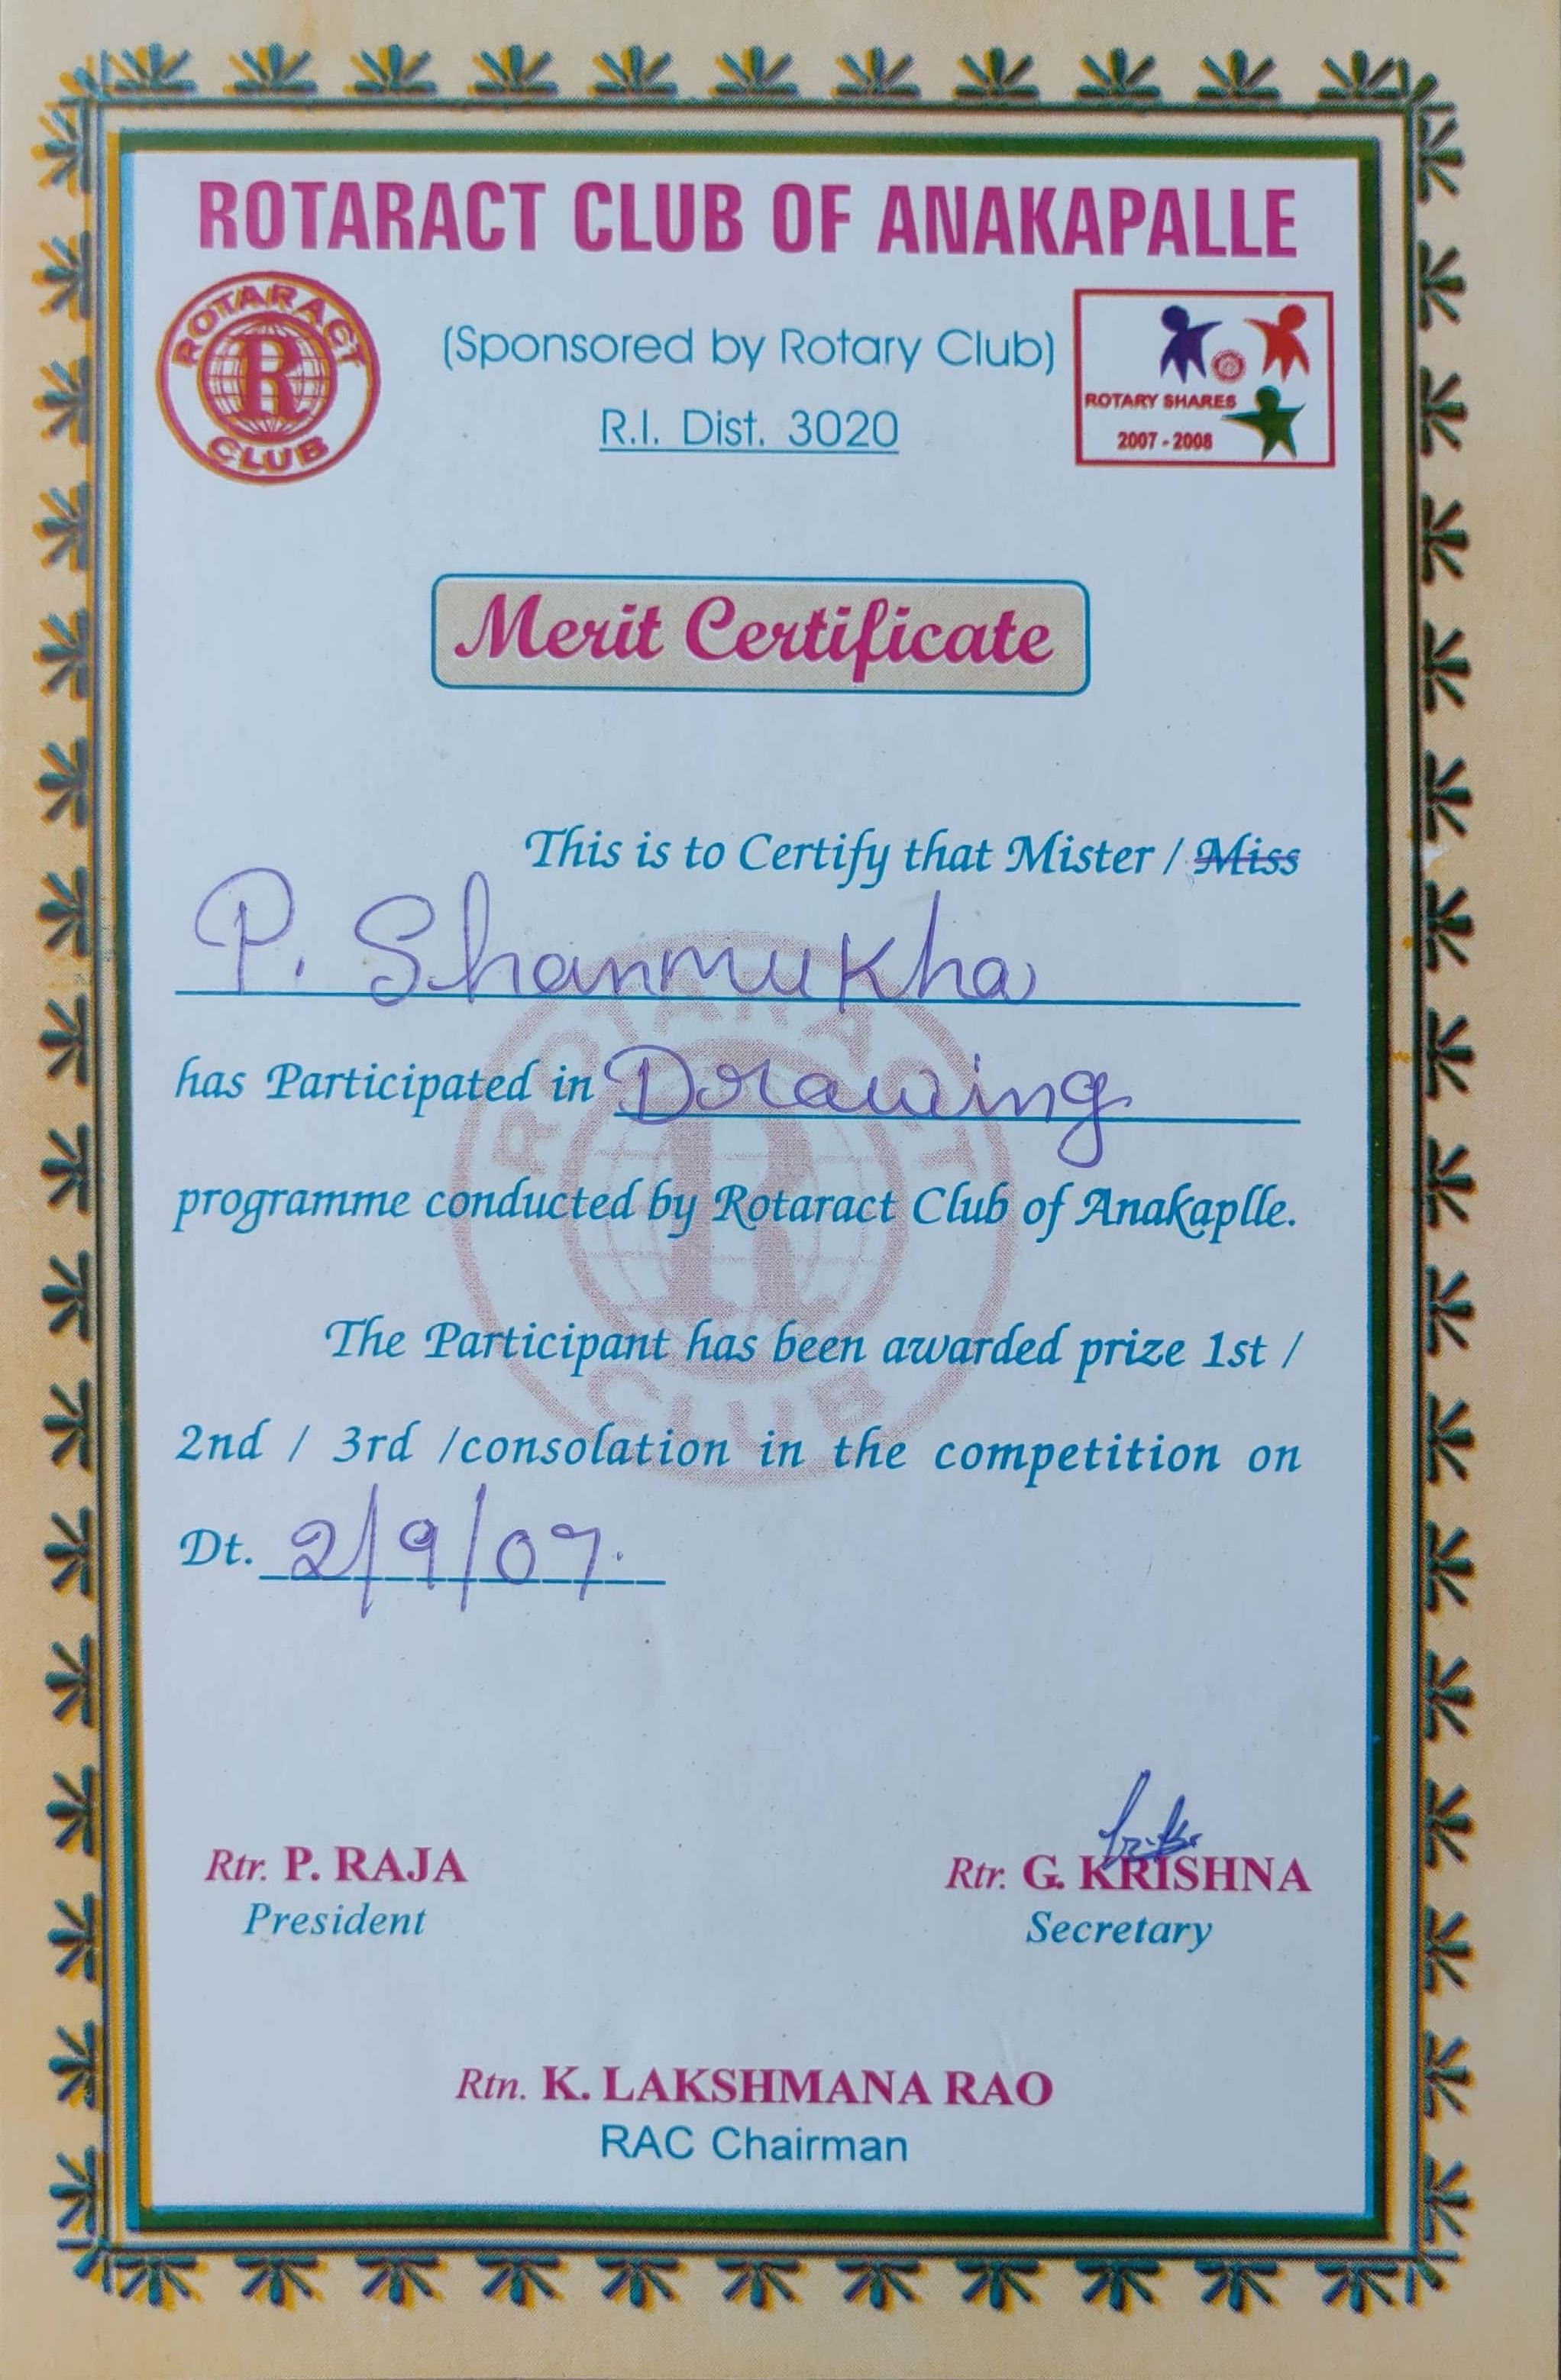 ROTARACT CLUB OF ANAKAPALLE
ROTARACT
R
CLUB
(Sponsored by Rotary Club)
R.I. Dist. 3020
ROTARY SHARES
2007 - 2008
Merit Certificate
This is to Certify that Mister / Miss
P. Shanmukha
has Participated in Drawing
programme conducted by Rotaract Club of Anakaplle.
The Participant has been awarded prize 1st /
2nd / 3rd /consolation in the competition on
Dt. 2/9/07.
Rtr. P. RAJA
President
Rtr. G. KRISHNA
Secretary
Rtn. K. LAKSHMANA RAO
RAC Chairman